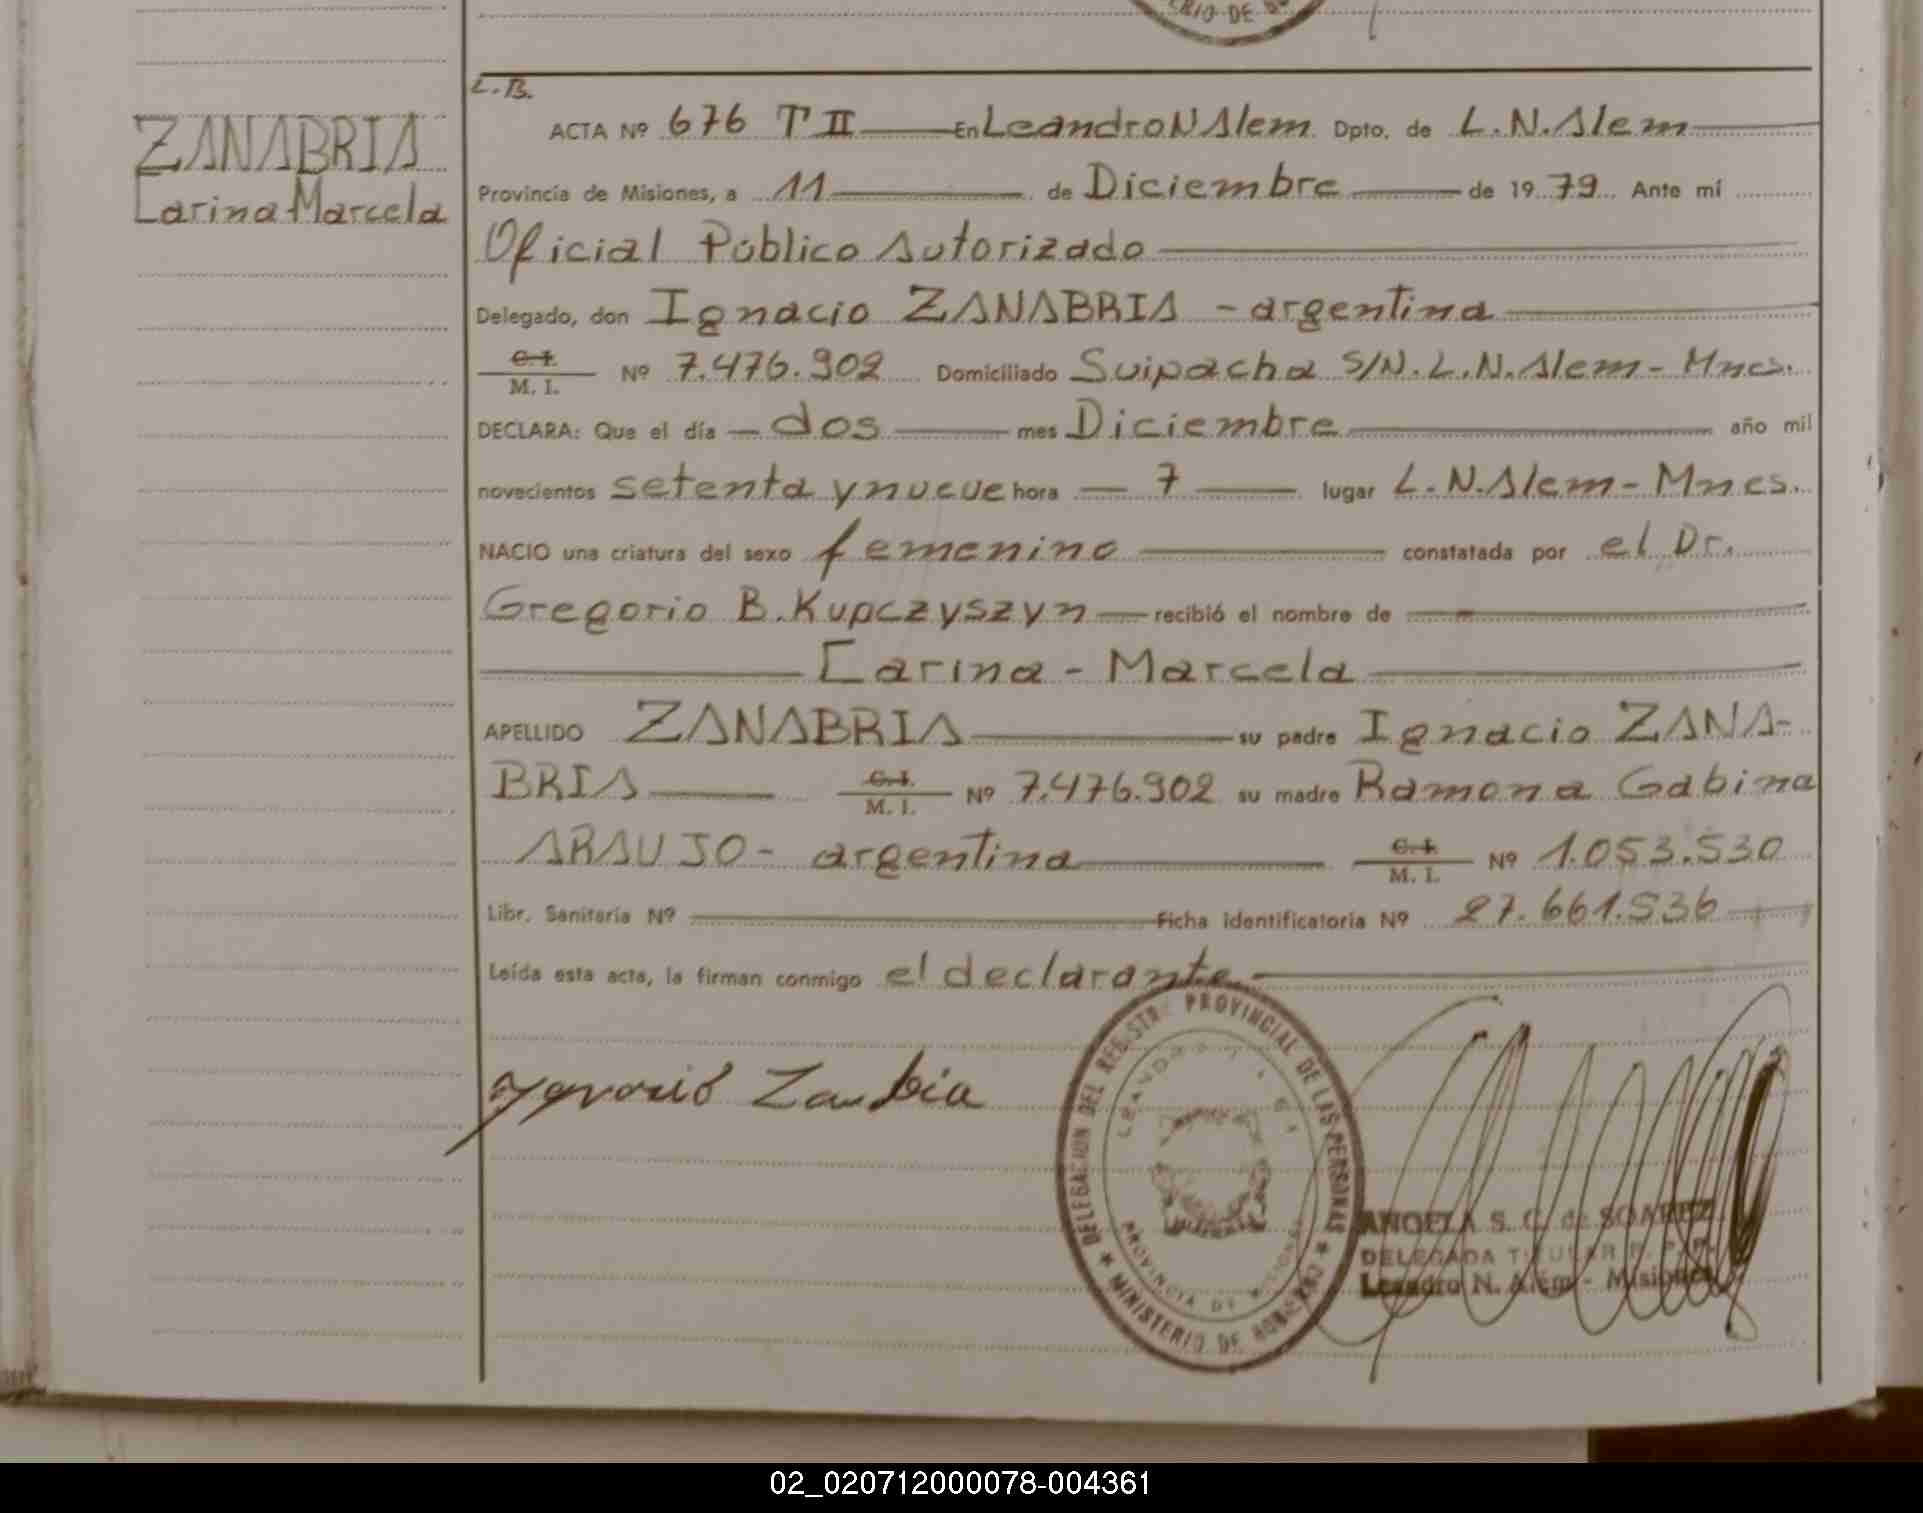 ERIO DE GO
L.B.
ZANABRIA
Carina-Marcela
ACTA Nº 676 T II En Leandro N Alem Dpto. de L.N.Alem
Provincia de Misiones, a 11 de Diciembre de 1979 Ante mí
Oficial Público Autorizado
Delegado, don Ignacio ZANABRIA - argentina
C.I.
M. I. Nº 7.476.902 Domiciliado Suipacha S/N. L.N.Alem - Mnes.
DECLARA: Que el día - dos mes Diciembre año mil
novecientos setenta y nueve hora - 7 lugar L.N.Alem - Mnes.
NACIO una criatura del sexo femenino constatada por el Dr.
Gregorio B. Kupczyszyn recibió el nombre de
Carina - Marcela
APELLIDO ZANABRIA su padre Ignacio ZANA-
BRIA C.I.
M. I. Nº 7.476.902 su madre Ramona Gabina
ARAUJO - argentina C.I.
M. I. Nº 1.053.530
Libr. Sanitaria Nº Ficha identificatoria Nº 27.661.536
Leída esta acta, la firman conmigo el declarante
DELEGACION DEL REGISTRO PROVINCIAL DE LAS PERSONAS
LEANDRO
PROVINCIA DE MISIONES
MINISTERIO DE GOBIERNO
ANGELA S. C. de SOAREZ
DELEGADA TITULAR R. P. P.
Leandro N. Alem - Misiones
02_020712000078-004361